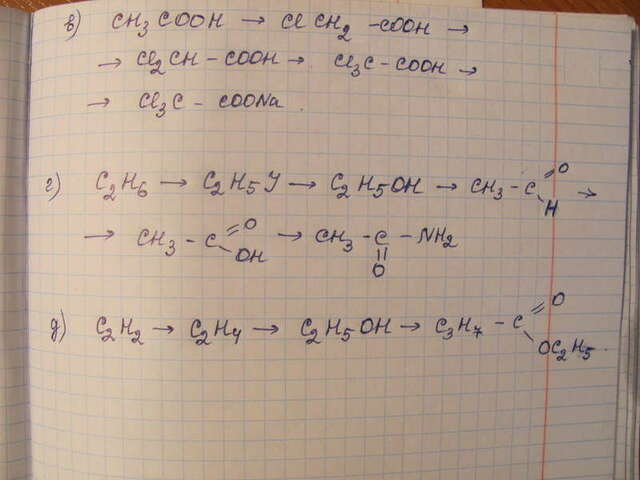 в) CH₃COOH → ClCH₂-COOH →
→ Cl₂CH-COOH → Cl₃C-COOH →
→ Cl₃C-COONa.
г) C₂H₆ → C₂H₅J → C₂H₅OH → CH₃-C=O H →
→ CH₃-C=O OH → CH₃-C-NH₂ || O
д) C₂H₂ → C₂H₄ → C₂H₅OH → C₃H₇-C=O OC₂H₅.